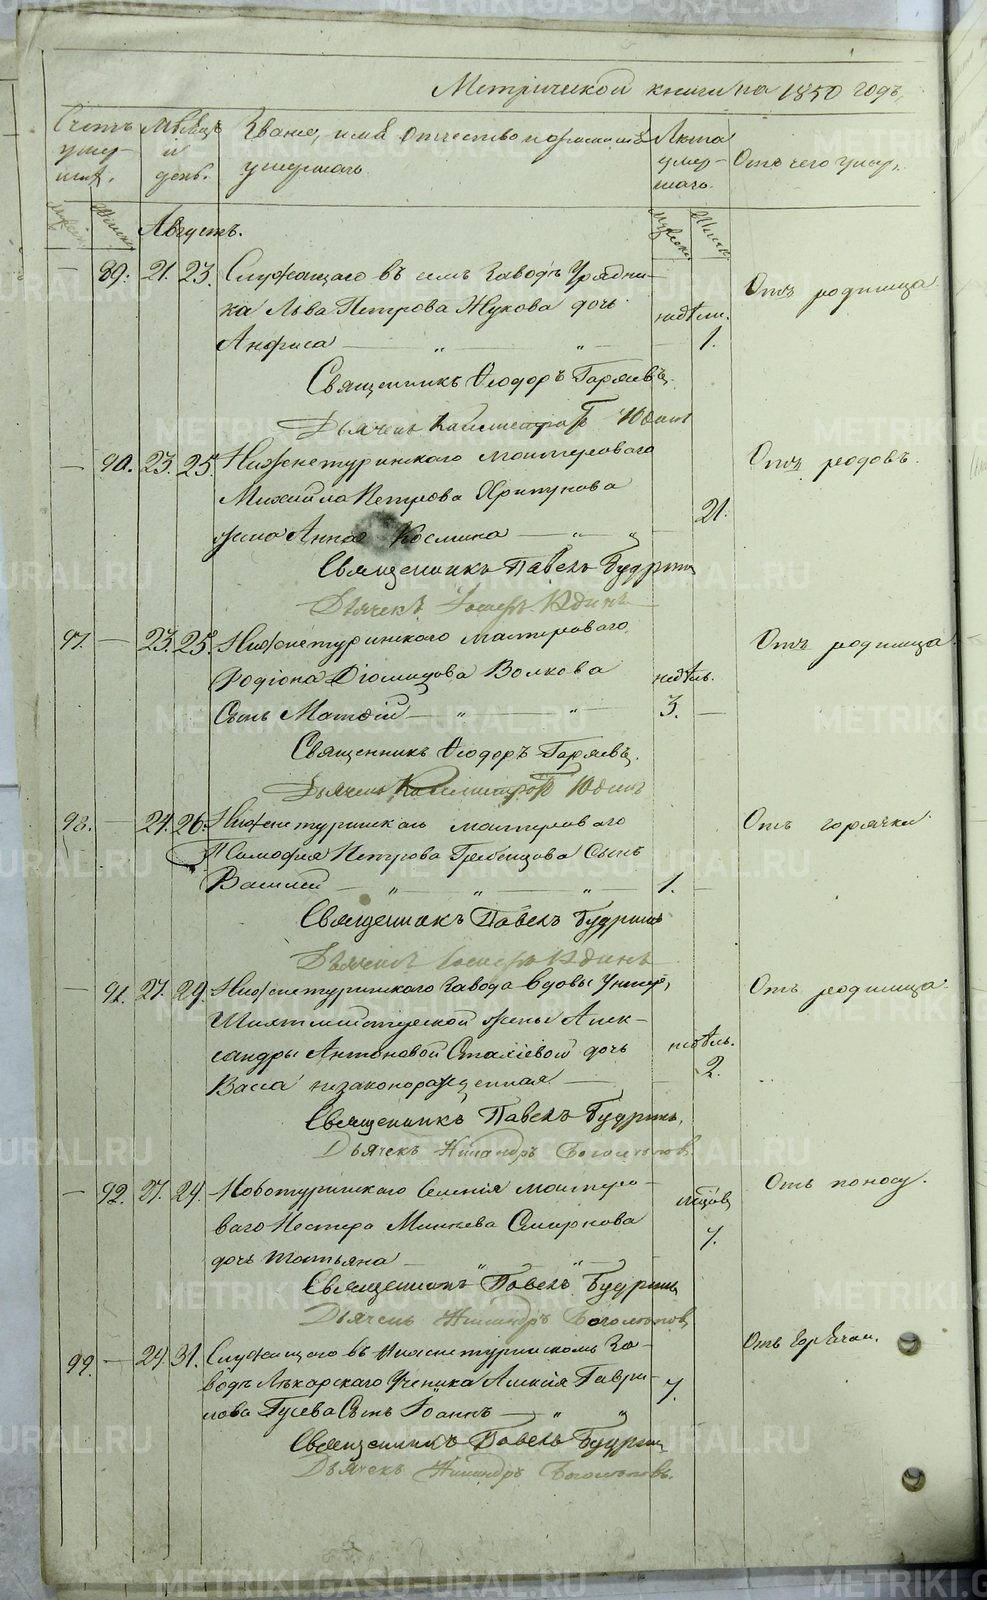 Метрической книги на 1850 годъ,
Счетъ умер-шихъ.
Мѣсяцъ и день.
Званіе, имя, отчество и фамилія умершаго.
Лѣта умер-шаго.
Отъ чего умеръ.
Августъ.
— 89. 21. 23. Служащаго въ семъ Заводѣ Урядни-
ка Льва Петрова Жукова дочь недѣли. Отъ родимца
Анфиса — „ — „ — 1.
Священникъ Ѳеодоръ Горяевъ.
Дьячекъ Каллистратъ Юдинъ
— 90. 23. 25. Нижнетуринскаго мастероваго Отъ родовъ.
Михаила Петрова Хрипунова
жена Анна Космина — „ — „ — 21.
Священникъ Павелъ Будринъ
Дьячекъ Іосифъ Юдинъ
97. — 23. 25. Нижнетуринскаго мастероваго Отъ родимца
Родіона Діомидова Волкова недѣль.
Сынъ Матѳій — „ — „ 3. —
Священникъ Ѳеодоръ Горяевъ.
Дьячекъ Каллистратъ Юдинъ
98. — 24. 26. Нижнетуринскаго мастероваго Отъ горячки.
Тимофея Петрова Гребенщова Сынъ
Василій — „ — „ — „ — 1. —
Священникъ Павелъ Будринъ
Дьячекъ Іосифъ Юдинъ
— 91. 27. 29. Нижнетуринскаго Завода вдовы Унтер, Отъ родимца.
Шихтмейстерской жены Алек-
сандры Антоновой дочь недѣль.
Васса незаконорожденная — 2.
Священникъ Павелъ Будринъ,
Дьячекъ Никандръ Боголѣповъ.
— 92. 27. 29. Новотуринскаго Селенія мастеро- мѣсяцовъ Отъ поносу.
ваго Нестера Смирнова 7.
дочь Татьяна — „ — „ —
Священникъ Павелъ Будринъ
Дьячекъ Никандръ Боголѣповъ
99. — 29. 31. Служащаго въ Нижнетуринскомъ За-
водѣ Лѣкарскаго Ученика Алексія Гаври- 7.
лова Гусева Сынъ Іоаннъ — „ „
Священникъ Павелъ Будринъ
Дьячекъ Никандръ Боголѣповъ.
METRIKI.GASO-URAL.RU